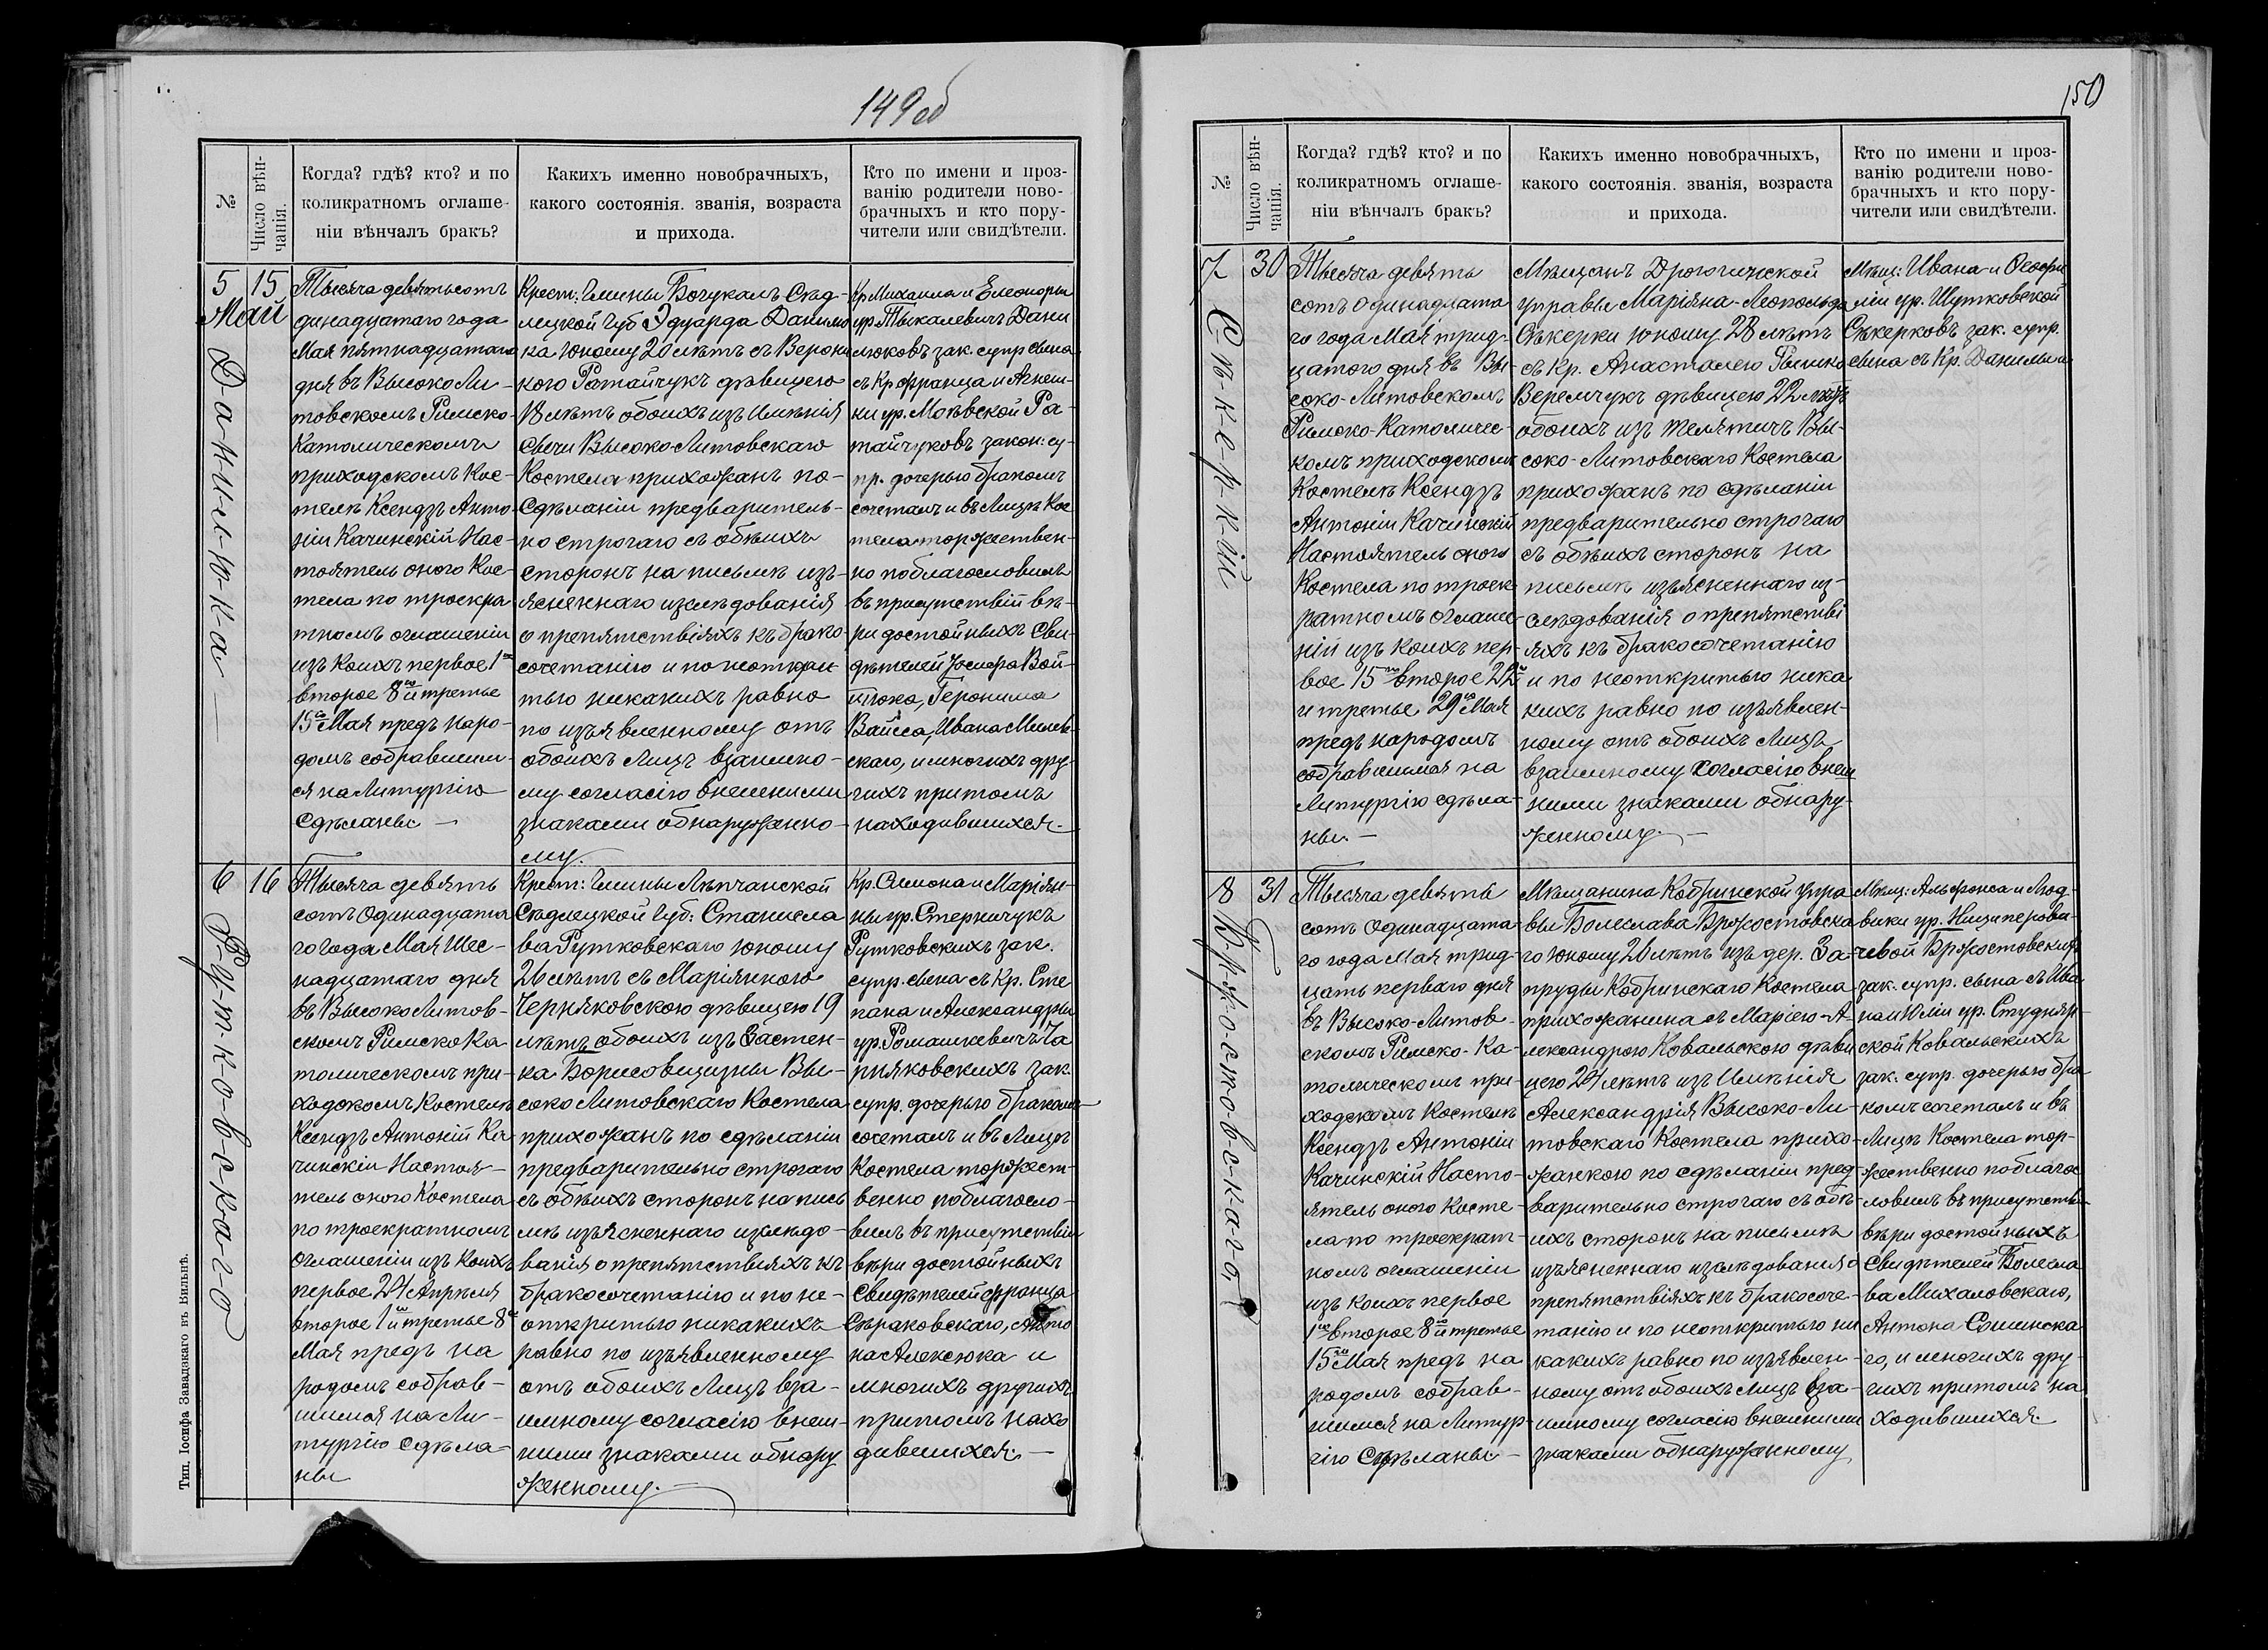 149 об
№
Число вѣн-
чанія.
Когда? гдѣ? кто? и по
коликратномъ оглаше-
ніи вѣнчалъ бракъ?
Какихъ именно новобрачныхъ,
какого состоянія. званія, возраста
и прихода.
Кто по имени и проз-
ванію родители ново-
брачныхъ и кто пору-
чители или свидѣтели.
5
Май
Данилюка
15
Тысяча девятьсотъ
динадцатаго года
Мая пятнадцатаго
дня въ Высоко Ли-
товскомъ Римско-
Католическомъ
приходскомъ Кос-
телѣ Ксендзъ Анто-
ній Качинскій Нас-
тоятель оного Кос-
тела по троекра
тномъ оглашеніи
изъ коихъ первое 1го
второе 8го и третье
15го Мая предъ наро-
домъ собравшим-
ся на Литургію
сдѣланы —
Крест: Гмины Богукалъ Сѣд-
лецкой Губ Эдуарда Данилю
ка юношу 20 лѣтъ съ Верони
кою Ратайчукъ дѣвицею
18 лѣтъ обоихъ изъ Имѣнія
Свечи Высоко-Литовскаго
Костела прихожанъ по-
сдѣланіи предваритель-
но строгаго съ обѣихъ
сторонъ на письмѣ изъ-
ясненнаго изслѣдованія
о препятствіяхъ къ брако
сочетанію и по неоткры-
тью никакихъ равно
по изъявленному отъ
обоихъ лицъ взаимно-
му согласію внешними
знаками обнаруженно-
му.
Кр Михаила и Елеоноры
ур. Тыкалевичъ Дани
люковъ зак. супр сына
съ Кр Франца и Агнеш-
ки ур. Моѣвской Ра-
тайчуковъ закон: су-
пр. дочерью бракомъ
сочеталъ и въ Лицѣ Кос
тела торжествен-
но поблагословилъ
въ присутствій вѣ-
ри достойныхъ Сви-
дѣтелей Іосифа Вой-
тюка, Геронима
Вайса, Ивана Милев-
скаго, и многихъ дру-
гихъ притомъ
находившихся.—
6
Рутковскаго
16
Тысяча девять
сотъ Одинадцата
го года Мая Шес-
надцатаго дня
въ Высоко Литов-
скомъ Римско Ка
толическомъ при-
ходскомъ Костелѣ
Ксендзъ Антоній Ка
чинскій Настоя-
тель оного Костела
по троекратномъ
оглашеніи изъ коихъ
первое 24 Апрѣля
второе 1го и третье 8го
Мая предъ на
родомъ собрав-
шимся на Ли-
тургію сдѣла-
ны
Крест: Гмины Лѣпчанской
Сѣдлецкой Губ: Станисла
ва Рутковскаго юношу
26 лѣтъ съ Маріянною
Черняковскою дѣвицею 19
лѣтъ обоихъ изъ Застен-
ка Борисовщины Вы-
соко Литовскаго Костела
прихожанъ по сдѣланіи
предварительно строгаго
съ обѣихъ сторонъ на пись
мѣ изъясненнаго изслѣдо-
ванія о препятствіяхъ къ
бракосочетанію и по не-
открытью никакихъ
равно по изъявленному
отъ обоихъ Лицъ вза-
имному согласію внеш-
ними знаками обнару
женному.
Кр. Симона и Маріян-
ны ур. Стерничукъ
Рутковскихъ зак.
супр. сына съ Кр. Сте
пана и Александры
ур. Ромашкевичъ Ча
рняковскихъ зак.
супр. дочерью бракомъ
сочеталъ и въ Лицѣ
Костела торжест-
венно поблагосло-
вилъ въ присутствіи
вѣри достойныхъ
Свидѣтелей Франца
Сѣраковскаго, Анто
на Алексюка и
многихъ другихъ
притомъ нахо
дившихся.—
Тип. Іосифа Завадзкаго въ Вильнѣ.
150
№
Число вѣн-
чанія.
Когда? гдѣ? кто? и по
коликратномъ оглаше-
ніи вѣнчалъ бракъ?
Какихъ именно новобрачныхъ,
какого состоянія. званія, возраста
и прихода.
Кто по имени и проз-
ванію родители ново-
брачныхъ и кто пору-
чители или свидѣтели.
7
30
Тысяча девять
сотъ одинадцата
го года Мая трид-
цатого дня въ Вы-
соко-Литовскомъ
Римско-Католичес-
комъ приходскомъ
Костелѣ Ксендзъ
Антоніи Качинскій
Настоятель оного
Костела по троек-
ратномъ оглаше-
ній изъ коихъ пер-
вое 15го второе 22го
и третье 29го Мая
предъ народомъ
собравшимся на
Литургію сдѣла-
ны.—
Мѣщанъ Дрогичиской
управы Маріяна-Леопольда
Сѣкерки юношу 28 лѣтъ
съ Кр. Анастасіею
Веремчукъ дѣвицею 22 лѣтъ
обоихъ изъ Телятичъ Вы-
соко-Литовскаго Костела
прихожанъ по сдѣланіи
предварительно строгаго
съ обѣихъ сторонъ на
письмѣ изъясненнаго из-
слѣдованія о препятстві
яхъ къ бракосочетанію
и по неоткритью ника
кихъ равно по изъявлен-
ному отъ обоихъ Лицъ
взаимному согласію внеш
ними знаками обнару-
женному.—
Мѣщ: Ивана и
ліи ур. Шутковской
Сѣкерковъ зак. супр.
сына съ Кр.
8
Бржостовскаго
31
Тысяча девять
сотъ Одинадцата-
го года Мая трид-
цать перваго дня
въ Высоко-Литов-
скомъ Римско-Ка-
толическомъ при-
ходскомъ Костелѣ
Ксендзъ Антоніи
Качинскій Насто-
ятель оного Косте-
ла по троекрат-
номъ оглашеніи
изъ коихъ первое
1го второе 8го и третье
15го Мая предъ на
родомъ собрав-
шимся на Литур-
гію Сдѣланы.—
Мѣщанина Кобринской упра
вы Болеслава Бржостовска
го юношу 26 лѣтъ изъ дер. За-
пруды Кобринскаго Костела
прихожанина съ Маріею-А-
лександрою Ковальскою дѣви
цею 24 лѣтъ изъ Имѣнія
Александрія Высоко-Ли-
товскаго Костела прихо-
жанкою по сдѣланіи пред-
варительно строгаго съ обѣ-
ихъ сторонъ на письмѣ
изъясненнаго изслѣдованія о
препятствіяхъ къ бракосоче-
танію и по неоткритью ни
какихъ равно по изъявлен-
ному отъ обоихъ Лицъ вза-
имному согласію внешними
знаками обнаруженному
Мѣщ: Альфонса и Люд-
вики ур. Ниципорови-
чевой Бржостовскихъ
зак. супр. сына съ Ива
на и Юліи ур. Студняр-
ской Ковальскихъ
зак. супр. дочерью бра-
комъ сочеталъ и въ
Лицѣ Костела тор-
жественно поблагос
ловилъ въ присутствіи
вѣри достойныхъ
Свидѣтелей Болесла
ва Михаловскаго,
Антона Сошинска
го, и многихъ дру-
гихъ притомъ на
ходившихся.